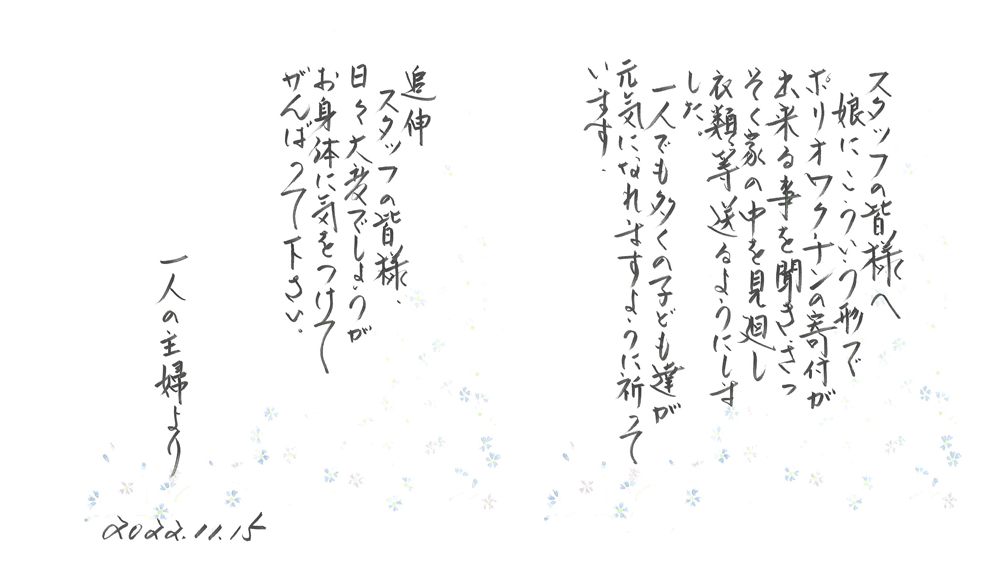 スタッフの皆様へ
娘にこういう形で
ポリオワクチンの寄付が
出来る事を聞きさっ
そく家の中を見廻し
衣類等送るようにしま
した。
一人でも多くの子ども達が
元気になれますように祈って
います。
追伸
スタッフの皆様、
日々大変でしょうが
お身体に気をつけて
がんばって下さい。
一人の主婦より
2022.11.15